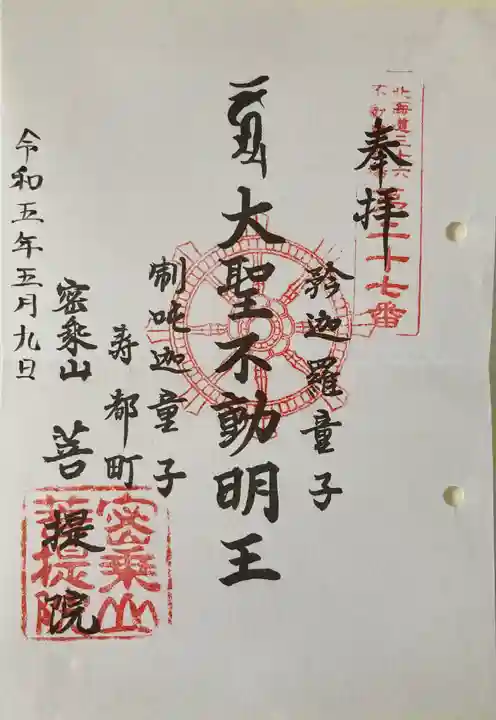 奉拝
北海道三十六
第二十七番
矜迦羅童子
大聖不動明王
制吒迦童子
寿都町
密乗山
菩提院
令和五年五月九日
密乗山
菩提院